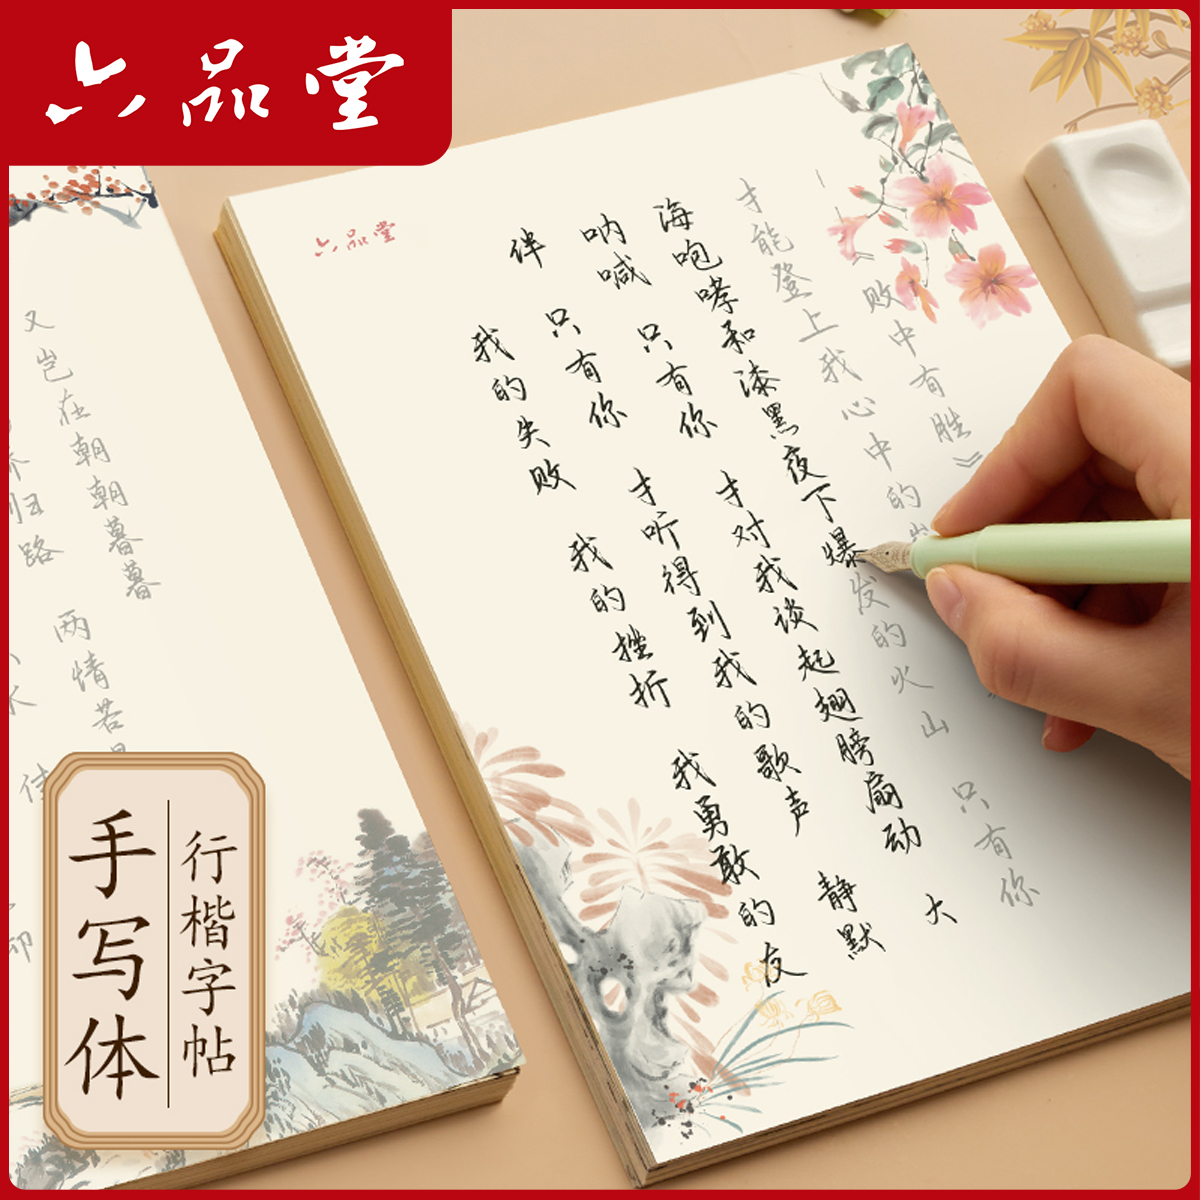 六品堂
六品堂
我的失败 我的挫折 我勇敢的友
伴 只有你 才听得到我的歌声 静默
呐喊 只有你 才对我谈起翅膀扇动 大
海咆哮和漆黑夜下爆发的火山 只有你
才能登上我心中的
—《败中有胜》
路 两情若
又岂在朝朝暮暮
手写体
行楷字帖